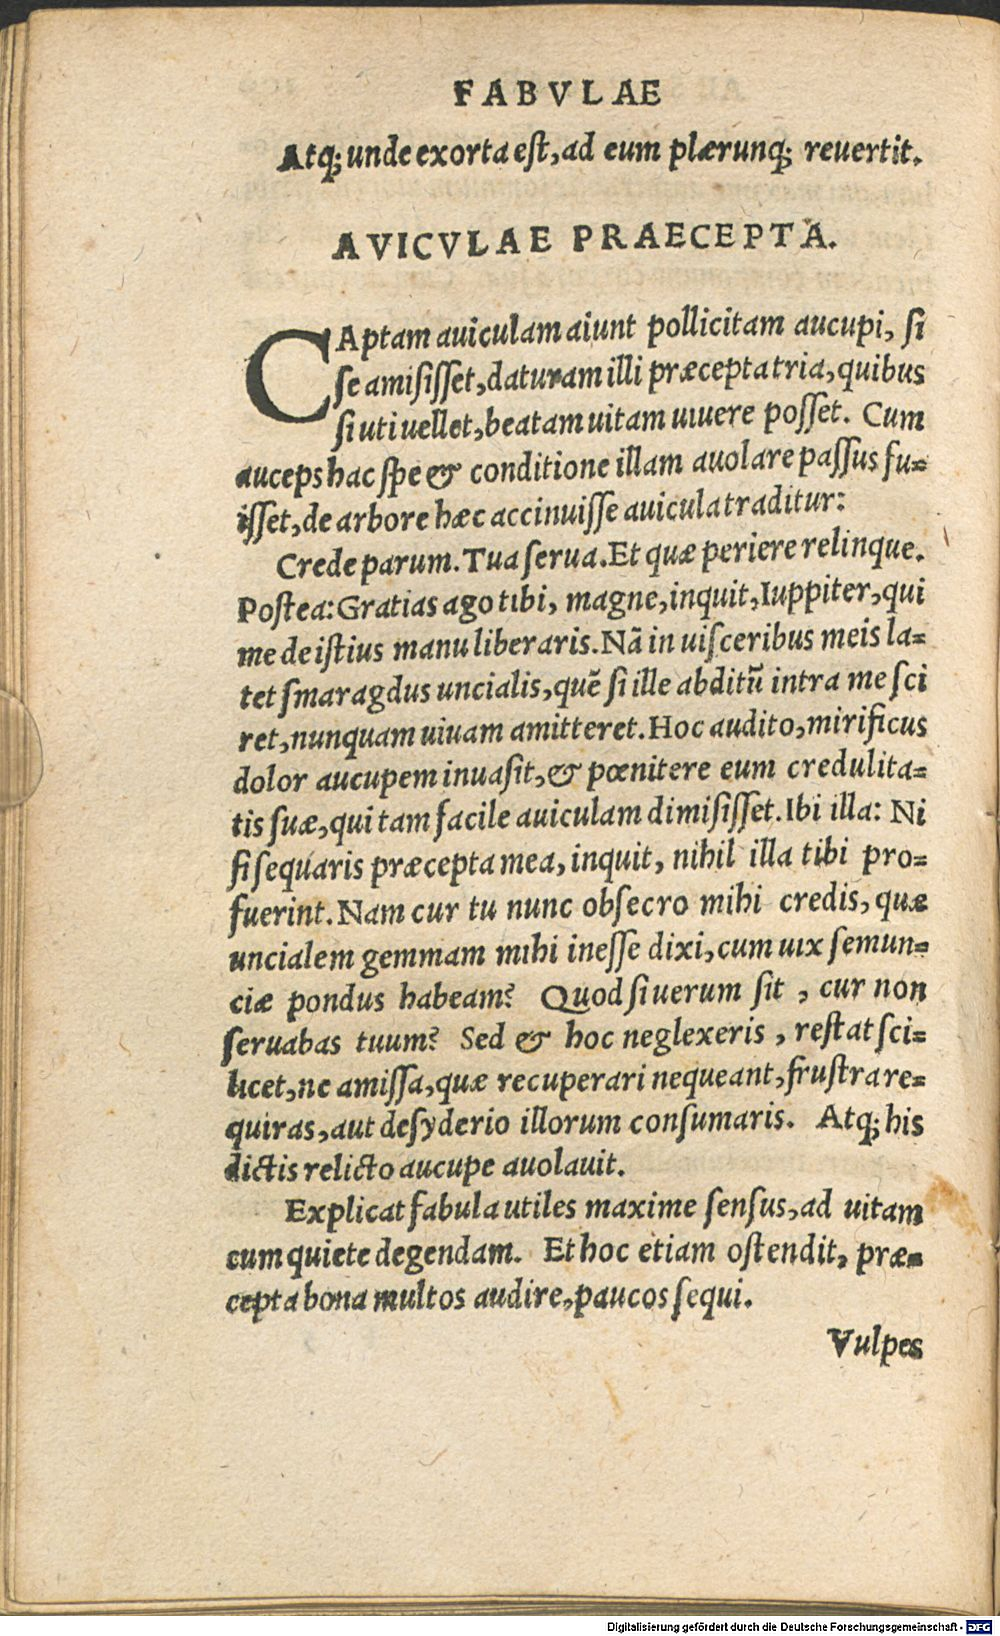 FABVLAE
Atq; unde exorta est, ad eum plærunq; reuertit.
AVICVLAE PRAECEPTA.
CAptam auiculam aiunt pollicitam aucupi, si
se amisisset, daturam illi præcepta tria, quibus
si uti uellet, beatam uitam uiuere posset. Cum
auceps hac spe & conditione illam auolare passus fu=
isset, de arbore hæc accinuisse auicula traditur:
Crede parum. Tua serua. Et quæ periere relinque.
Postea: Gratias ago tibi, magne, inquit, Iuppiter, qui
me de istius manu liberaris. Nã in uisceribus meis la=
tet smaragdus uncialis, quẽ si ille abditũ intra me sci
ret, nunquam uiuam amitteret. Hoc audito, mirificus
dolor aucupem inuasit, & pœnitere eum credulita=
tis suæ, qui tam facile auiculam dimisisset. Ibi illa: Ni
si sequaris præcepta mea, inquit, nihil illa tibi pro=
fuerint. Nam cur tu nunc obsecro mihi credis, quæ
uncialem gemmam mihi inesse dixi, cum uix semun=
ciæ pondus habeam? Quod si uerum sit, cur non
seruabas tuum? Sed & hoc neglexeris, restat sci=
licet, ne amissa, quæ recuperari nequeant, frustra re=
quiras, aut desyderio illorum consumaris. Atq; his
dictis relicto aucupe auolauit.
Explicat fabula utiles maxime sensus, ad uitam
cum quiete degendam. Et hoc etiam ostendit, præ=
cepta bona multos audire, paucos sequi.
Vulpes
Digitalisierung gefördert durch die Deutsche Forschungsgemeinschaft - DFG